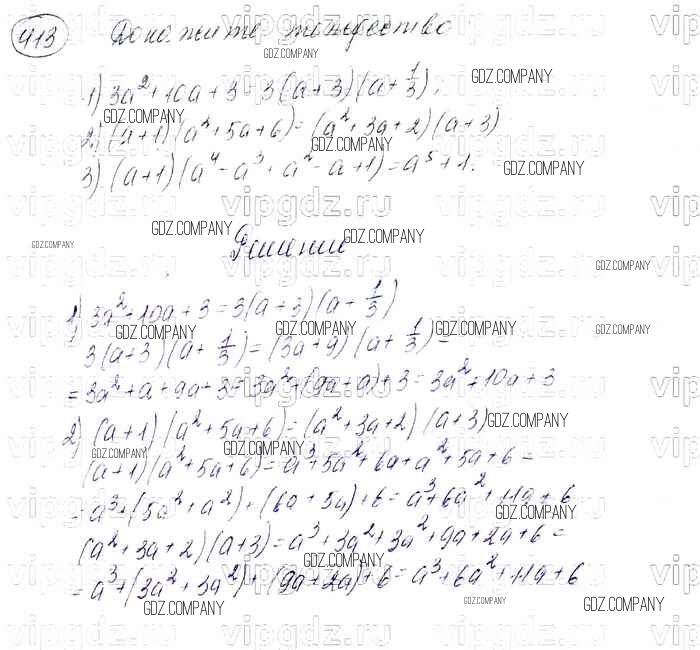 413 Докажите тождество
1) 3a² + 10a + 3 = 3(a + 3)(a + 1/3);
2) (a+1)(a² + 5a + 6) = (a² + 3a + 2)(a + 3)
3) (a+1)(a⁴ - a³ + a² - a + 1) = a⁵ + 1.
Решение
1) 3a² + 10a + 3 = 3(a + 3)(a + 1/3)
3(a+3)(a + 1/3) = (3a + 9)(a + 1/3) =
= 3a² + a + 9a + 3 = 3a² + (9a + a) + 3 = 3a² + 10a + 3
2) (a+1)(a² + 5a + 6) = (a² + 3a + 2)(a + 3)
(a+1)(a² + 5a + 6) = a³ + 5a² + 6a + a² + 5a + 6 =
= a³ + (5a² + a²) + (6a + 5a) + 6 = a³ + 6a² + 11a + 6
(a² + 3a + 2)(a + 3) = a³ + 3a² + 3a² + 9a + 2a + 6 =
= a³ + (3a² + 3a²) + (9a + 2a) + 6 = a³ + 6a² + 11a + 6